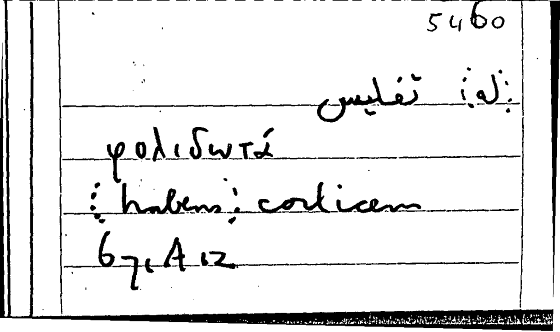 5460
⁝له⁝ تفليس
φολιδωτά
⁝habens⁝ corticem
671 A 12